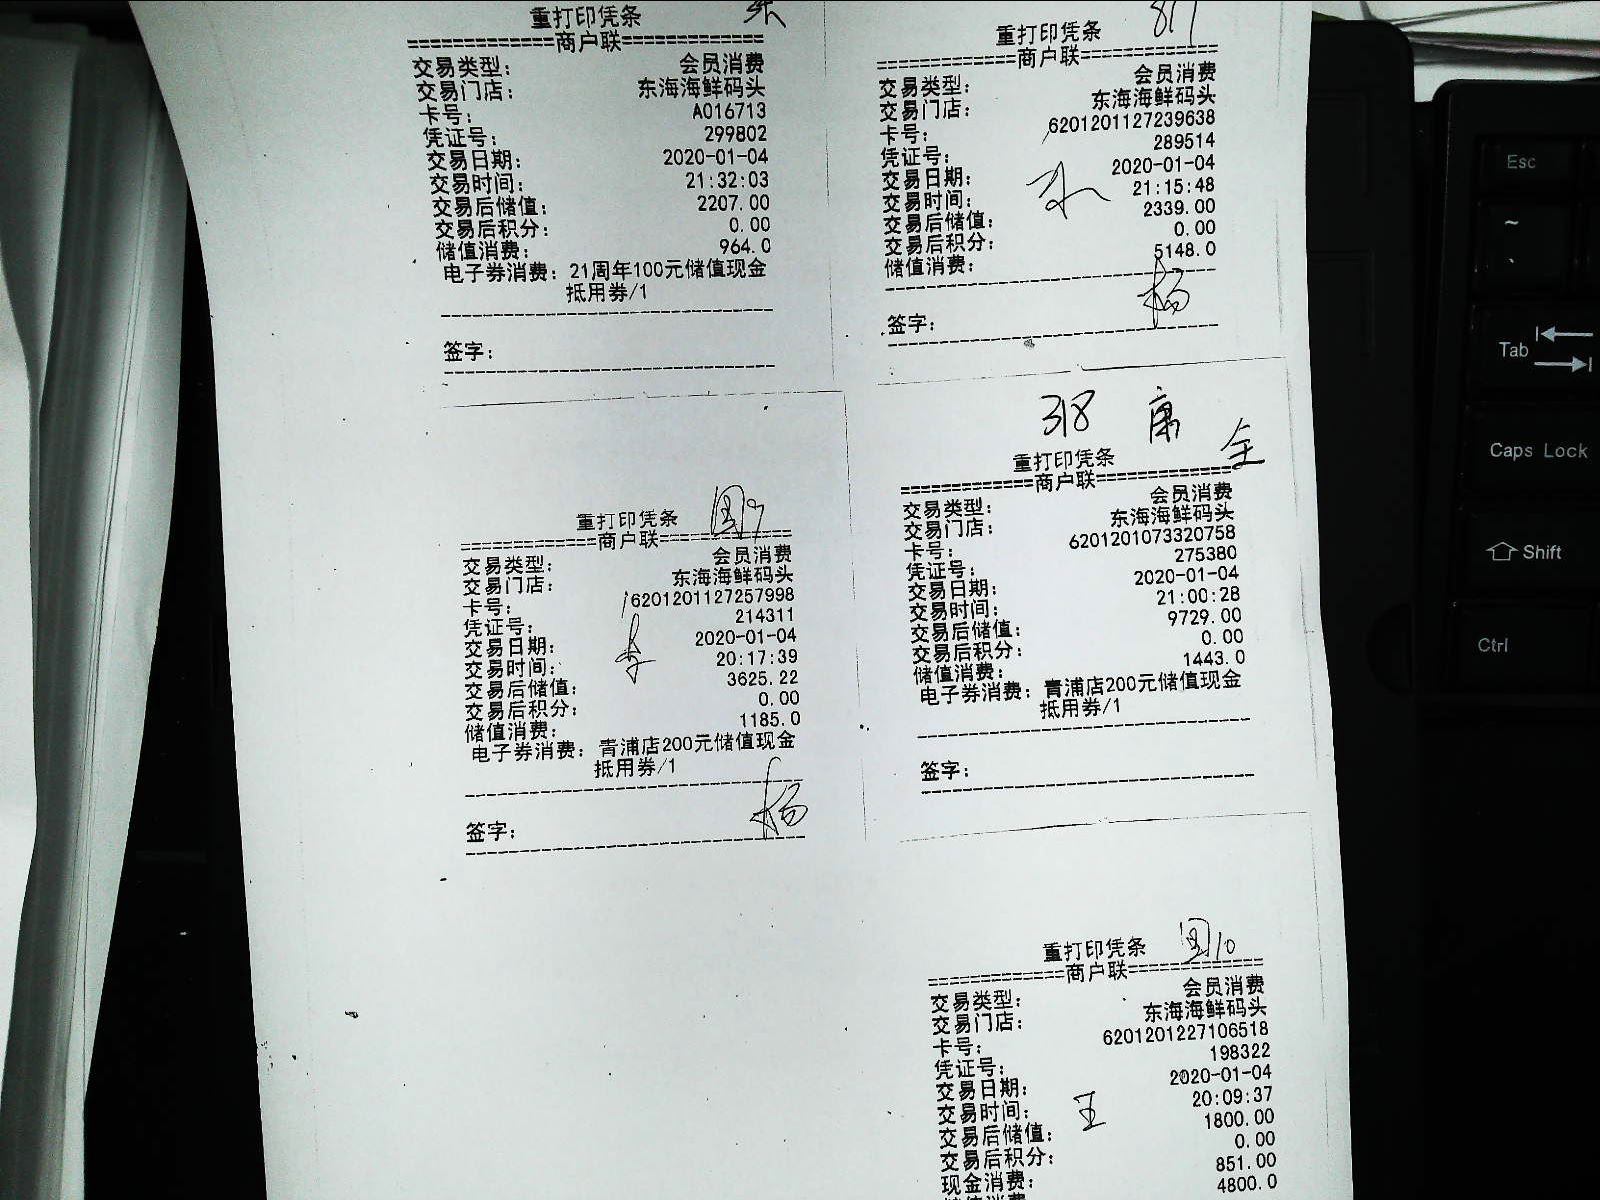 重打印凭条
=============商户联=============
交易类型： 会员消费
交易门店： 东海海鲜码头
卡号： A016713
凭证号： 299802
交易日期： 2020-01-04
交易时间： 21:32:03
交易后储值： 2207.00
交易后积分： 0.00
储值消费： 964.0
电子券消费：21周年100元储值现金
抵用券/1
签字：
重打印凭条
=============商户联=============
交易类型： 会员消费
交易门店： 东海海鲜码头
卡号： 6201201127239638
凭证号： 289514
交易日期： 2020-01-04
交易时间： 21:15:48
交易后储值： 2339.00
交易后积分： 0.00
储值消费： 5148.0
杨
签字：
重打印凭条
=============商户联=============
交易类型： 会员消费
交易门店： 东海海鲜码头
卡号： 6201201127257998
凭证号： 214311
交易日期： 2020-01-04
交易时间： 20:17:39
交易后储值： 3625.22
交易后积分： 0.00
储值消费： 1185.0
电子券消费：青浦店200元储值现金
抵用券/1
签字： 杨
318 唐 全
重打印凭条
=============商户联=============
交易类型： 会员消费
交易门店： 东海海鲜码头
卡号： 6201201073320758
凭证号： 275380
交易日期： 2020-01-04
交易时间： 21:00:28
交易后储值： 9729.00
交易后积分： 0.00
储值消费： 1443.0
电子券消费：青浦店200元储值现金
抵用券/1
签字：
重打印凭条
=============商户联=============
交易类型： 会员消费
交易门店： 东海海鲜码头
卡号： 6201201227106518
凭证号： 198322
交易日期： 2020-01-04
交易时间： 王 20:09:37
交易后储值： 1800.00
交易后积分： 0.00
现金消费： 851.00
4800.0
Esc
~
Tab
Caps Lock
Shift
Ctrl